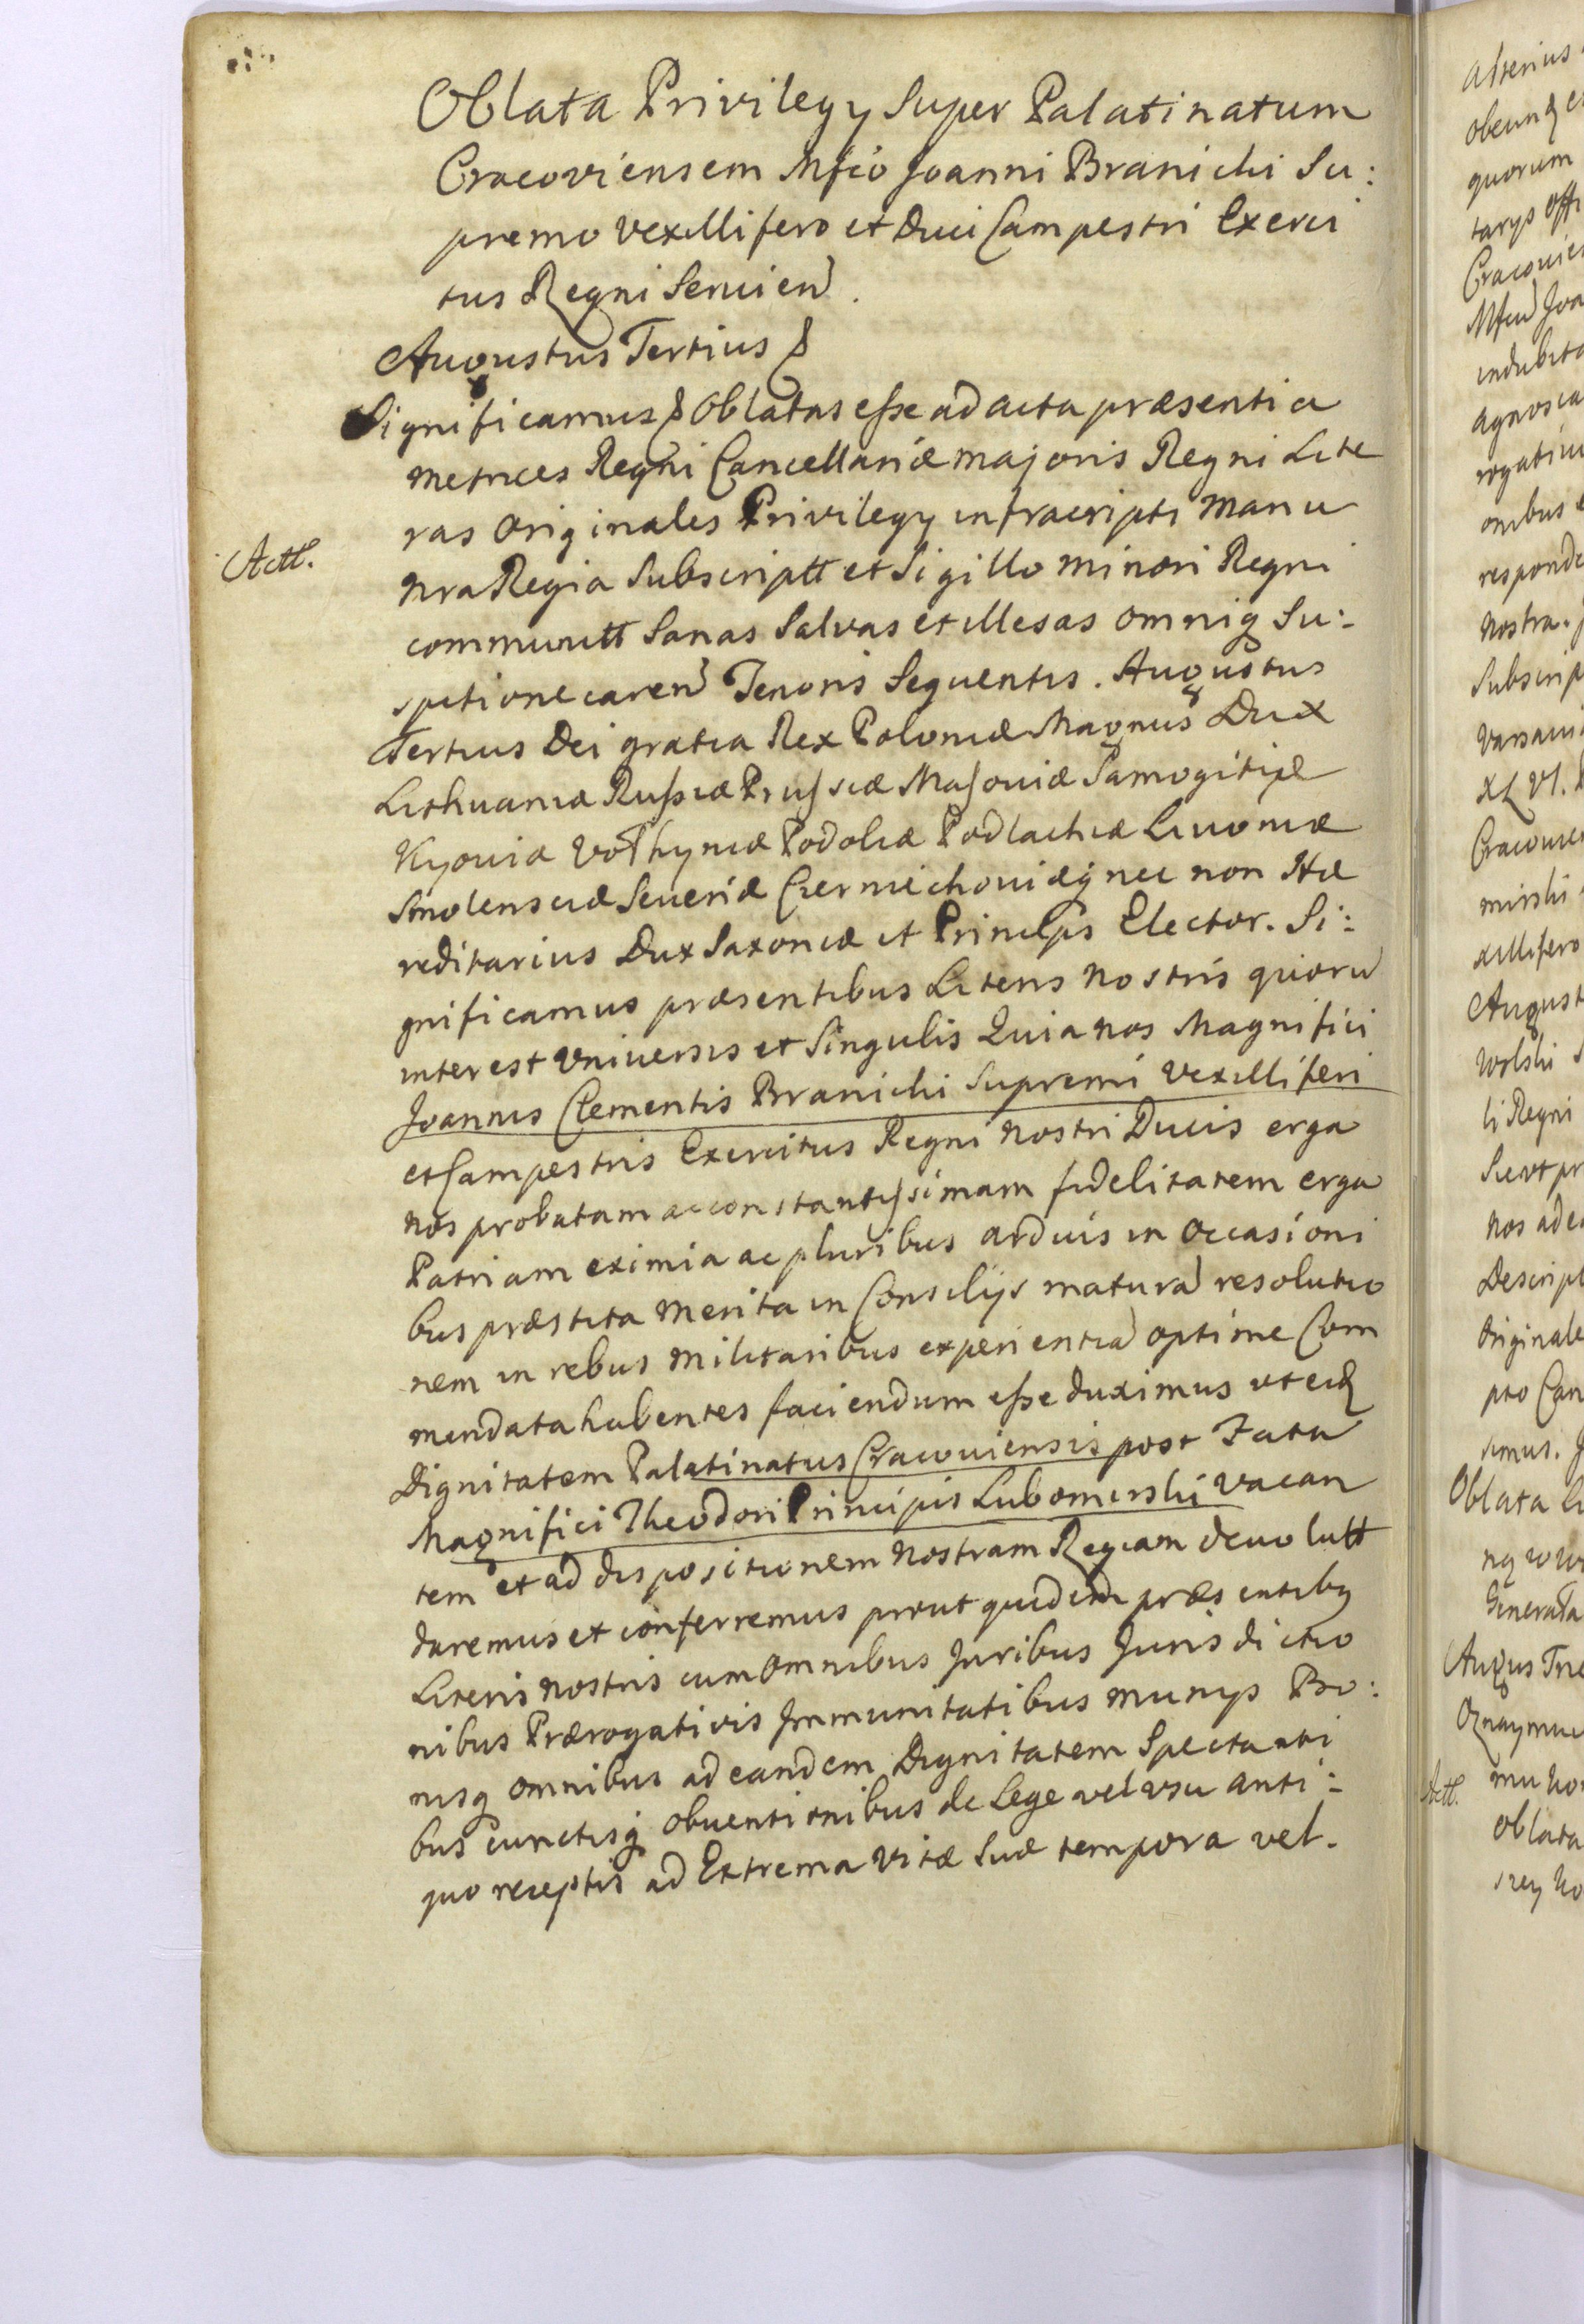 Oblata Privilegy Super Palatinatum
Cracoviensem Mfco Joanni Branicki Su:
premo Vexillifero et Duci Campestri Exerci
tus Regni Servien.
Augustus Tertius &
Significamus & Oblatas esse ad acta præsentia
Metrices Regni Cancellariæ majoris Regni Lite
ras Originales Privilegy infrascripti Manu
Actt.
Nra Regia Subscriptt et Sigillo minori Regni
communitt Sanas Salvas et illesas omniq Su:
spitione caren Tenoris Sequentis. Augustus
Tertius Dei gratia Rex Poloniæ Magnus Dux
Lithuaniæ Russiæ Prussiæ Masoviæ Samogitiæ
Kyoviæ Volhyniæ Podoliæ Podlachiæ Livoniæ
Smolensciæ Severiæ Czerniechoviæq nec non Hæ
reditarius Dux Saxoniæ et Princeps Elector. Si:
gnificamus præsentibus Literis Nostris quoru
interest Universis et Singulis Quia nos Magnifici
Joannis Clementis Branicki Supremi Vexilliferi
et Campestris Exercitus Regni Nostri Ducis erga
nos probatam ac constantissimam fidelitatem erga
Patriam eximia ac pluribus arduis in Occasioni
bus præstita Merita in Consilijs matura resolutio
nem in rebus Militaribus experientia optime Com
mendata habentes faciendum esse duximus ut eid
Dignitatem Palatinatus Cracoviensis post Fata
Magnifici Theodori Principis Lubomirski Vacan
tem et ad dispositionem Nostram Regiam devolutt
daremus et conferremus prout quidem præsentibq
Literis Nostris cum Omnibus Juribus Jurisdictio
nibus Prærogativis Immunitatibus Munijs Bo:
nisq omnibus ad eandem Dignitatem Spectanti
bus cunctisq obventionibus de Lege vel usu anti:
quo receptis ad Extrema Vitæ Suæ tempora vel.
alterius
obeund
quorum
Cracovien
Mfcu Joa
indubita
agnosca
rogativ
onibus
responde
Nostra.
Subscrip
Varsavi
XLVI.
Cracovien
mirski
xillifero
August
Wolski
li Regni
Sicut pr
Nos ad
Descript
Originale
pto Can
simus.
Oblata Li
Generała
Augus Trze
Oznaymu
Actt.
oblata